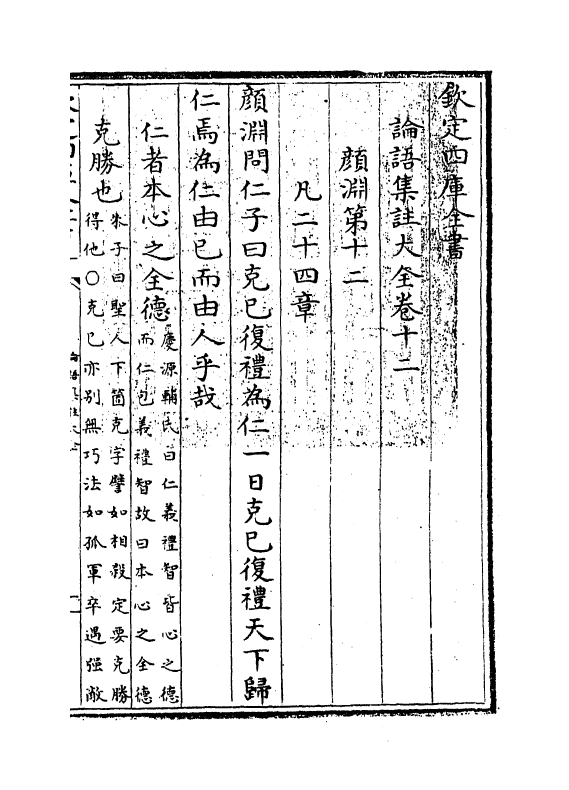 欽定四庫全書
論語集註大全卷十二
顔淵第十二
凡二十四章
顔淵問仁子曰克己復禮為仁一日克己復禮天下歸
仁焉為仁由己而由人乎哉
仁者本心之全德
慶源輔氏曰仁義禮智皆心之德
而仁包義禮智故曰本心之全德
克勝也
朱子曰聖人下箇克字譬如相殺定要克勝
得他○克己亦別無巧法如孤軍卒遇强敵